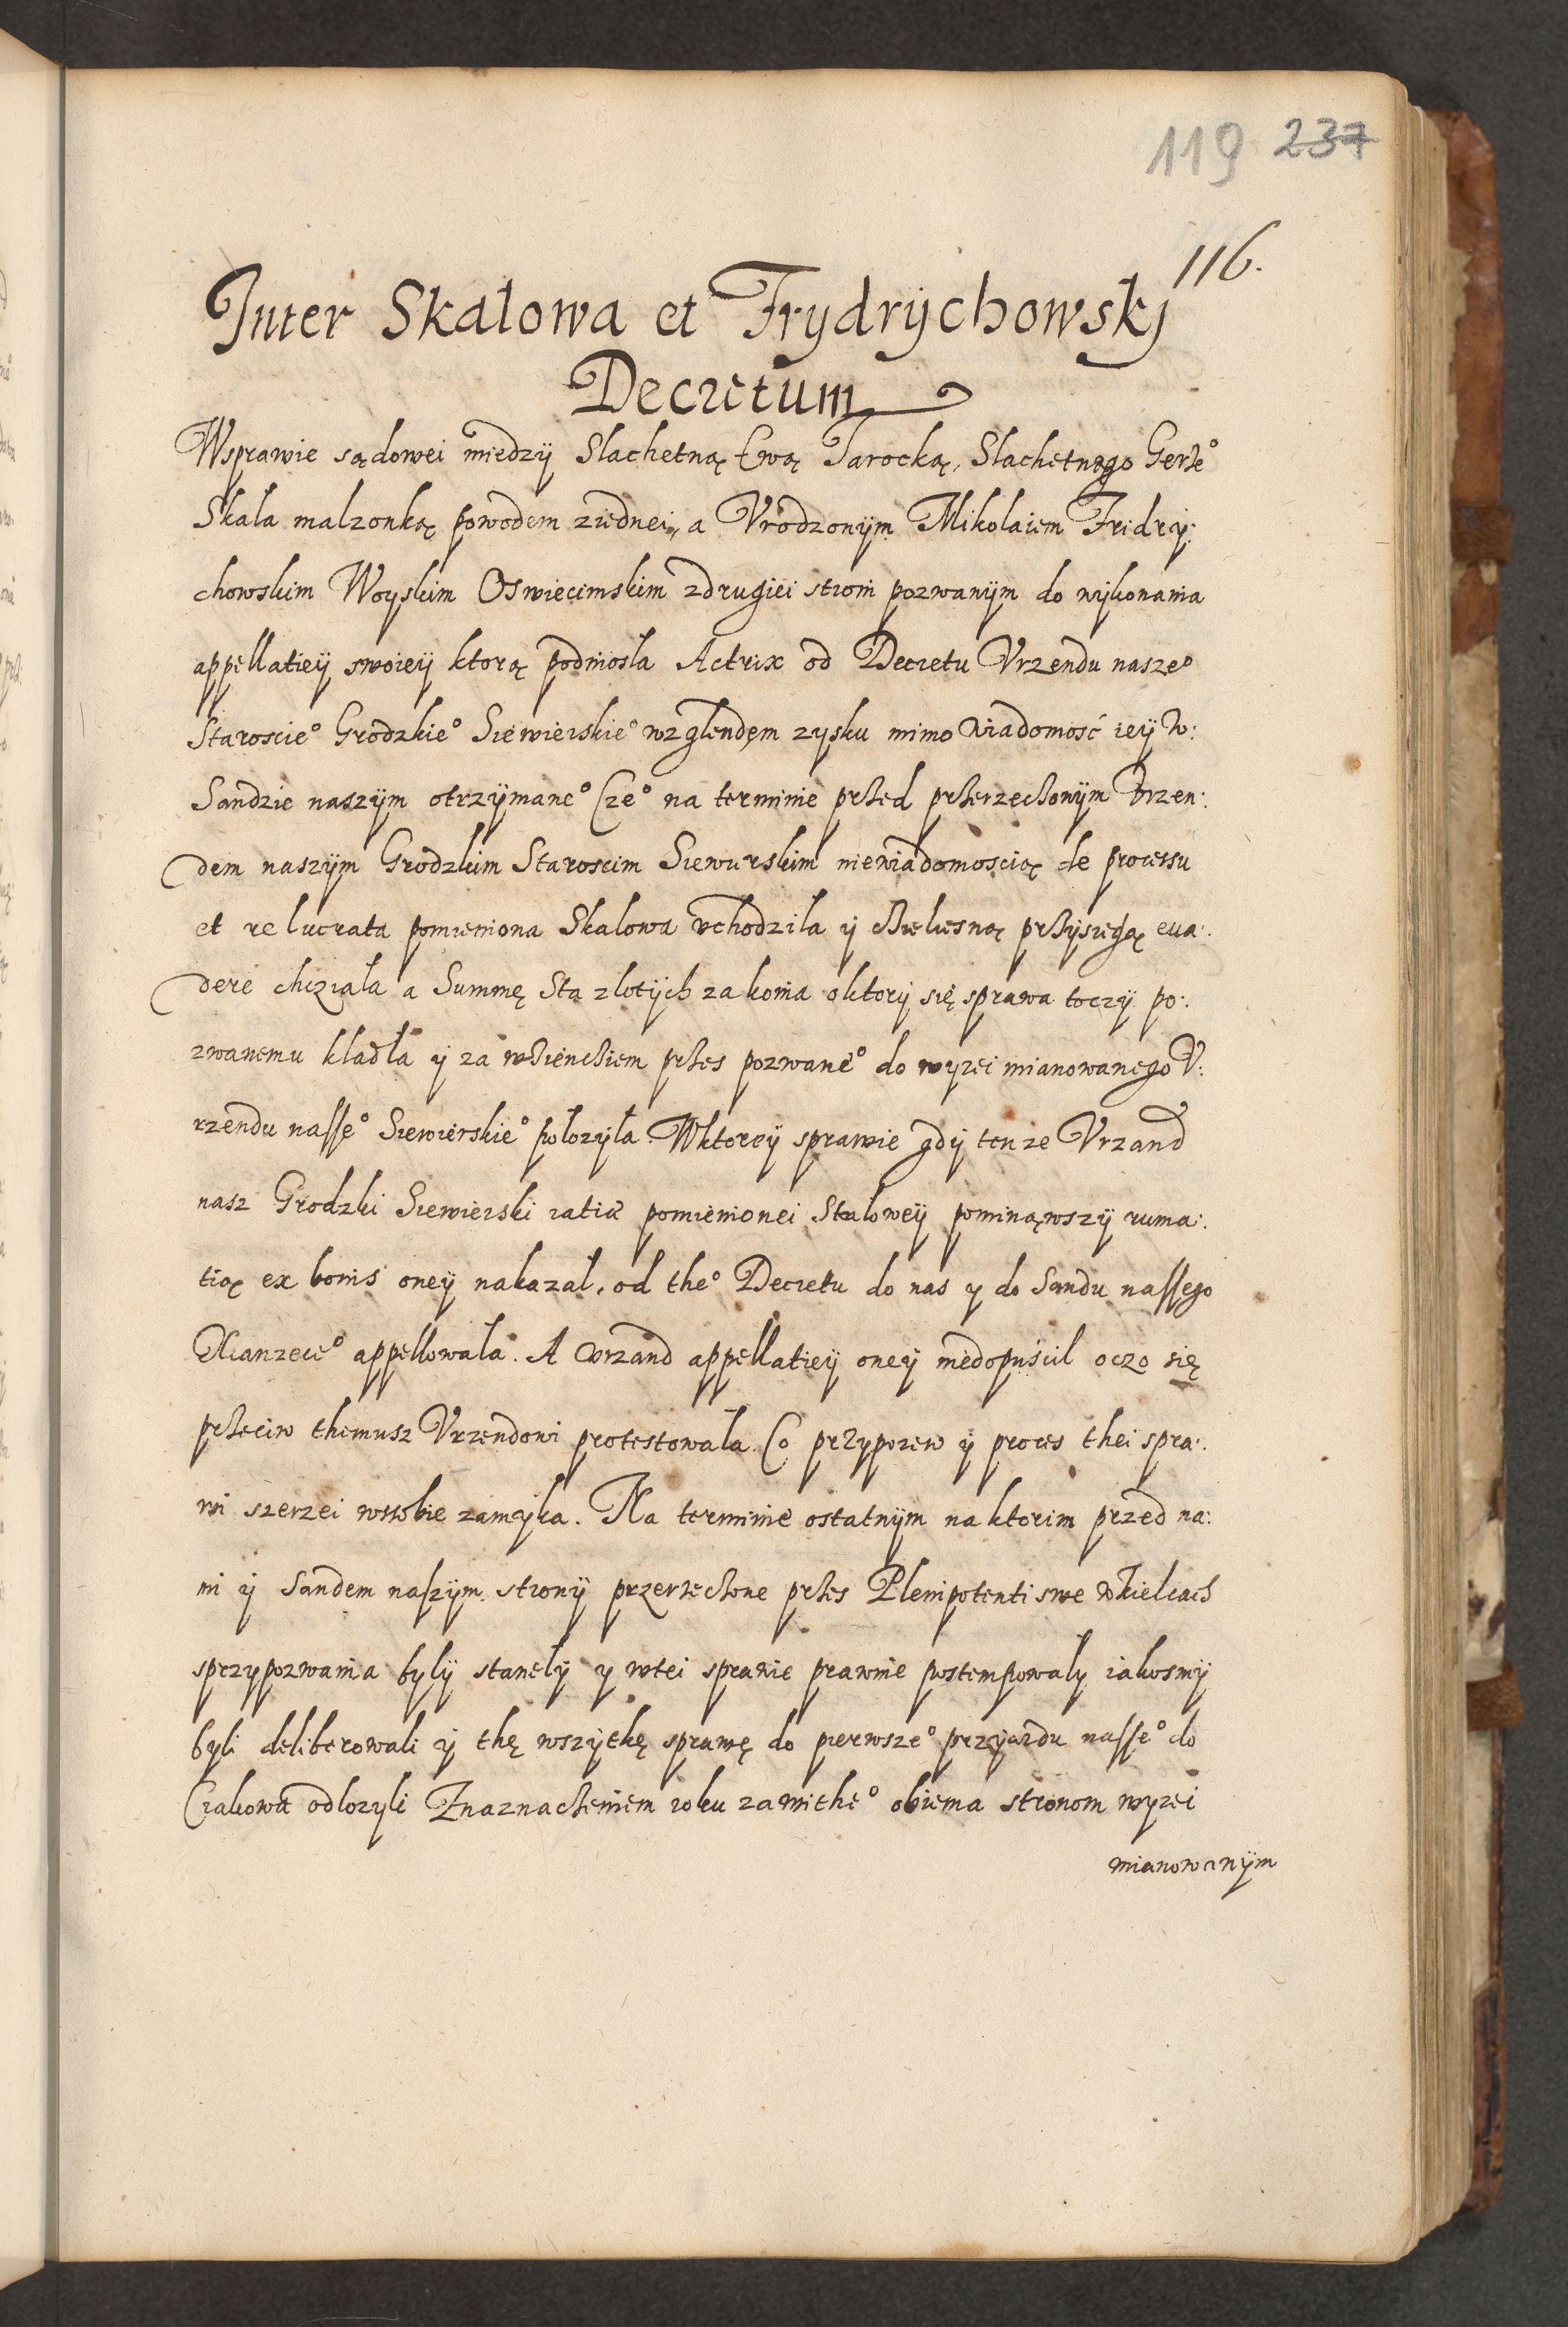 119 237
116.
Inter Skalowa et Frydrÿchowskj
Decretum
Wsprawie sądowei miedzÿ Slachetną Ewą Jarocką, Slachetnego Gerzeº
Skala malzonką powodem ziednei, a Vrodzonÿm Mikolaiem Fridrÿ:
chowskim Woyskim Oswiecimskim zdrugiei stroni pozwanÿm do wÿkonania
appellatieÿ swoieÿ ktorą podniosla Actrix od Decretu Vrzendu naszeº
Staroscieº Grodzkieº Siewierskieº wzglendem zysku mimo wiadomość ieÿ w:
Sandzie naszÿm otrzÿmaneº Czeº na terminie przed przerzeczonÿm Vrzen:
dem naszÿm Grodzkim Staroscim Siewierskim niewiadomoscią de processu
et re lucrata pomieniona Skalowa vchodzila ÿ czielesną przÿsiegą eua:
dere chcziala a Summę Sta zlotÿch za konia o ktorÿ się sprawa toczÿ po:
zwanemu kladla ÿ za wzienciem przes pozwaneº do wyzei mianowanego V:
rzendu nasseº Siewierskieº polozÿla. Wktoreÿ sprawie gdÿ tenze Vrzand
nasz Grodzki Siewierski ratiā pomienionei Skaloweÿ pominąwszÿ ruma:
tią ex bonis oneÿ nakazal, od theº Decretu do nas y do Sandu nassego
Xianzecieº appellowala. A Vrzand appellatieÿ oneÿ niedopuścil oczo się
przeciw themusz Vrzendowi protestowala. Co przypozew ÿ proces thei spra:
wi szerzei wssobie zamÿka. Na terminie ostatnÿm na ktorim przed na:
mi ÿ Sandem naszÿm stronÿ przerzeczone przes Plenipotenti swe wkielcach
sprzypozwania bÿlÿ stanelÿ y wtei sprawie prawnie postempowaly iakosmÿ
byli deliberowali ÿ thę wszÿtkę sprawę do pierwszeº przÿiazdu nasseº do
Czakowa odlozyli Znaznaczeniem roku zawitheº obiema stronom wyzei
mianowanÿm